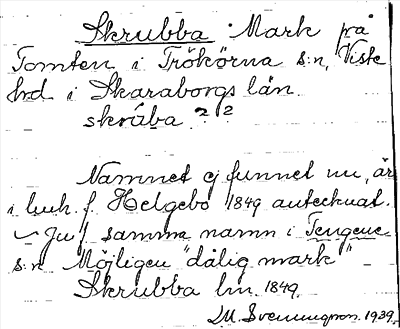 Skrubba Mark på
Tomten i Trökörna s:n, Viste
hrd i Skaraborgs län.
skrúba ? ?
Namnet ej funnet nu, är
i luh. f. Helgebo 1849 antecknat.
Ju f samma namn i Tengene
s:n Möjligen "dålig mark"
Skrubba lm. 1849.
M. Svenungson. 1939.